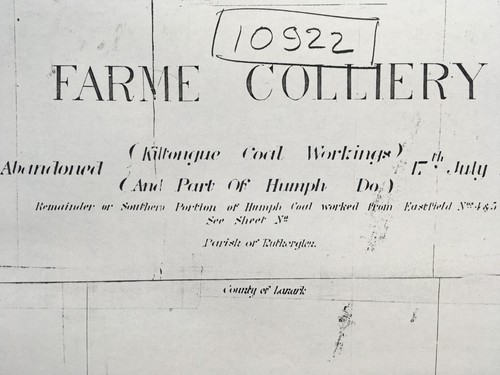 10922
FARME COLLIERY
(Kiltongue Coal Workings)
Abandoned 17th July
(And Part Of Humph Do.)
Remainder or Southern Portion of Humph Coal worked from Eastfield Nos 4 & 5
See Sheet No
Parish of Rutherglen.
County of Lanark